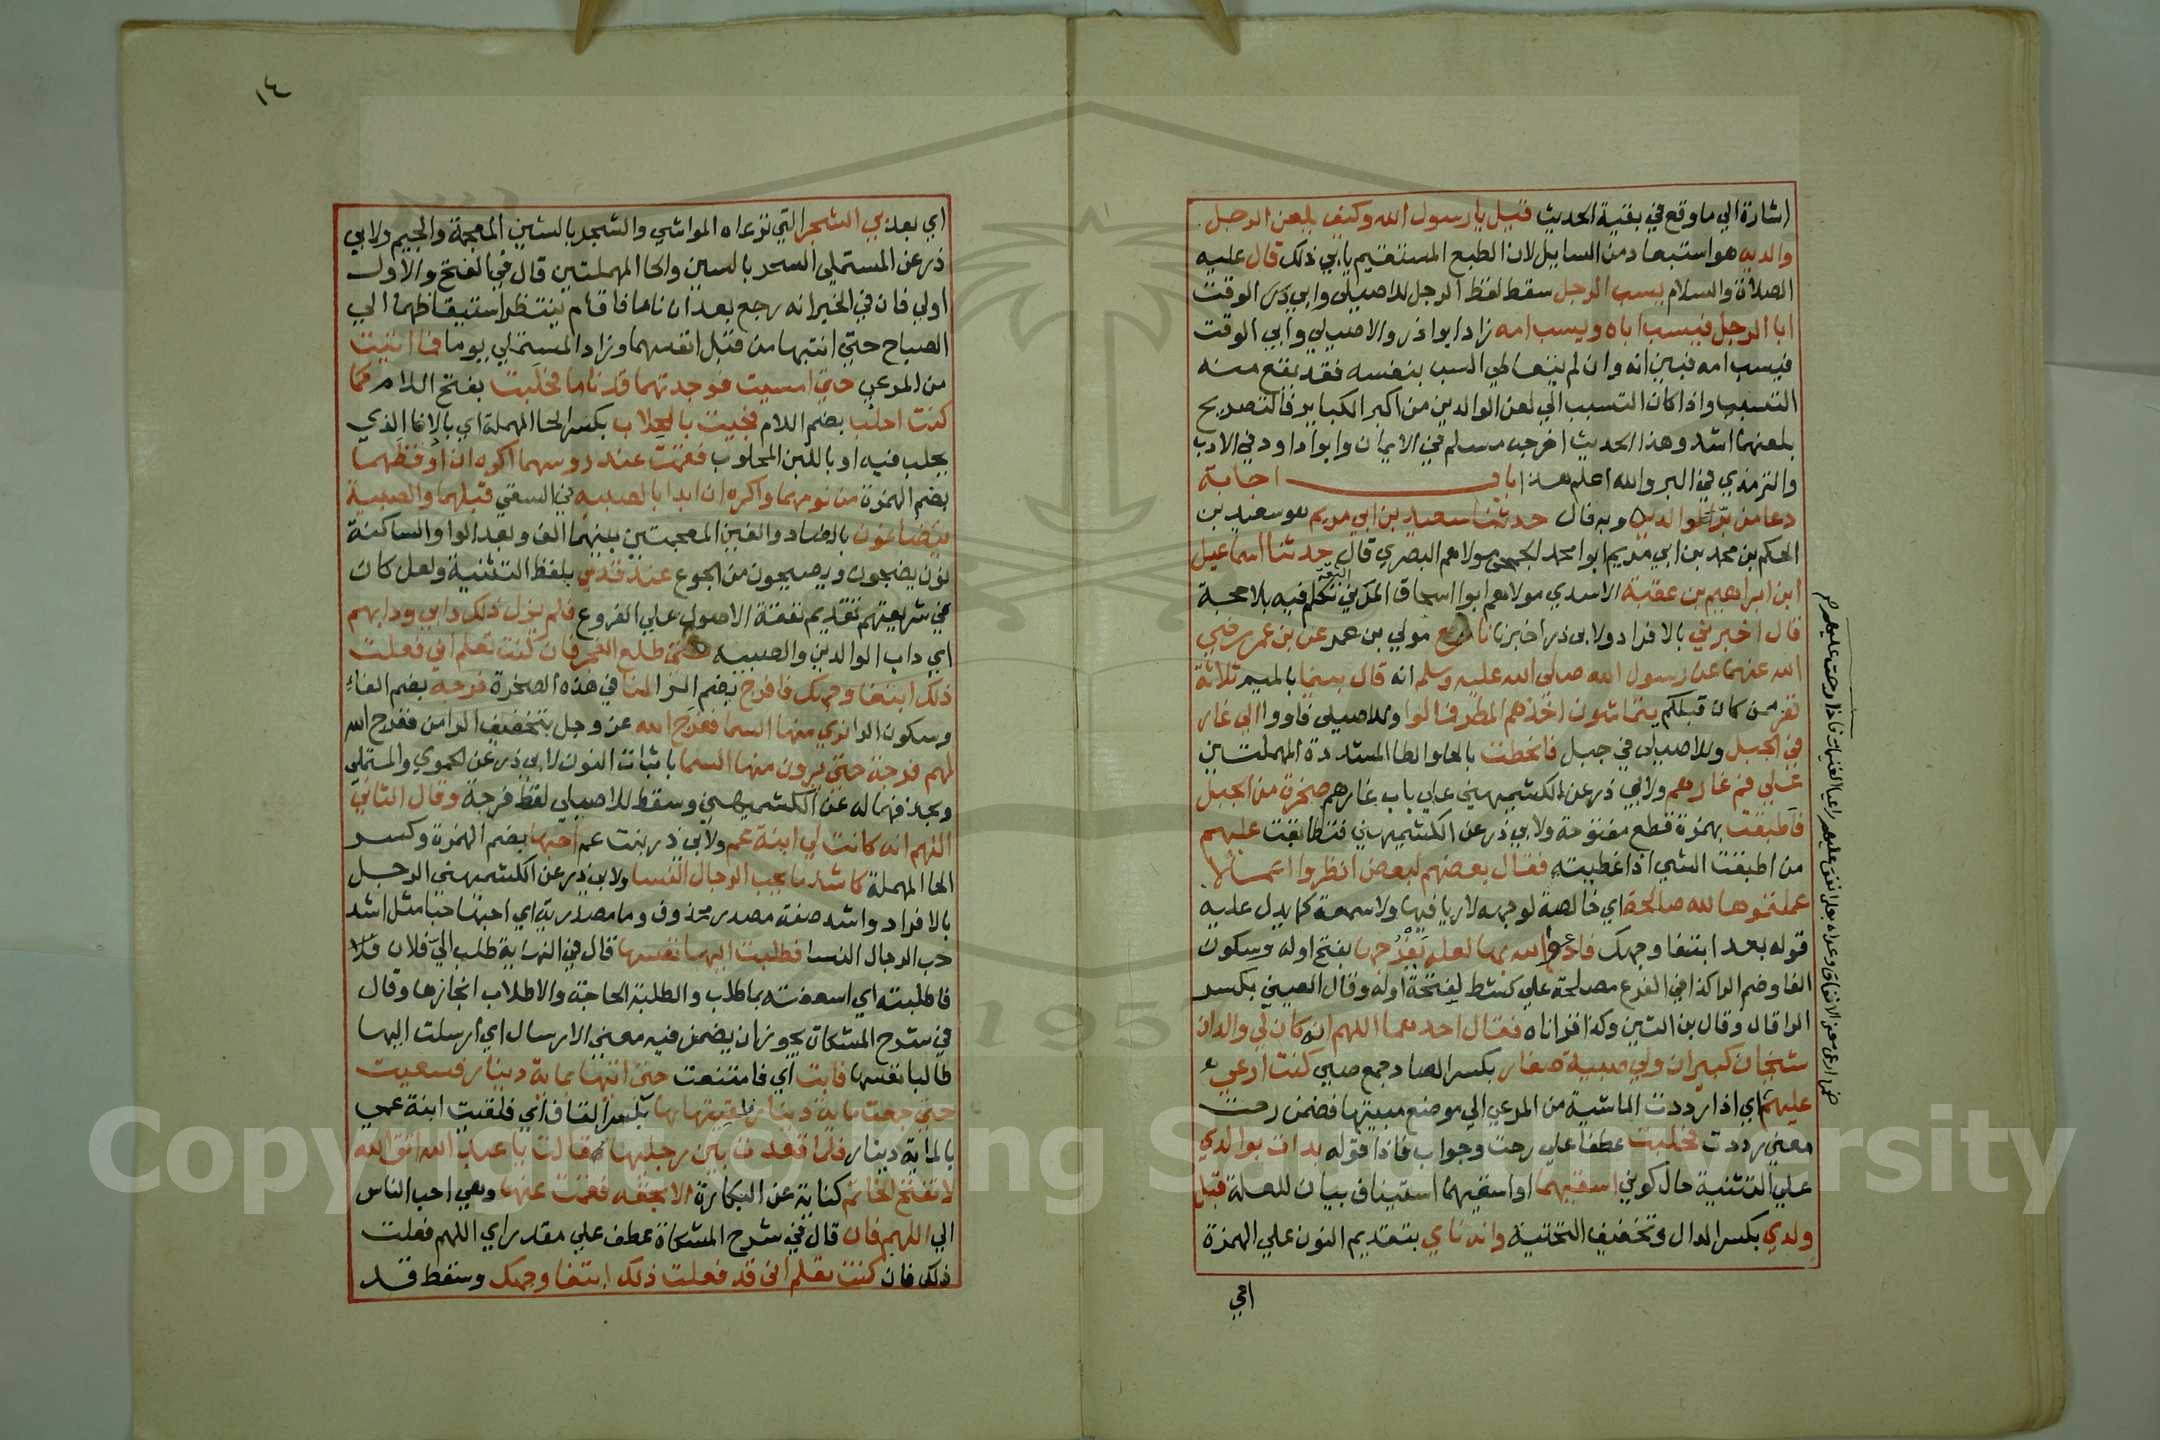 اشارة الي ما وقع في بقية الحديث قيل يا رسول الله وكيف يلعن الرجل
والديه هو استبعاد من السايل لان الطبع المستقيم يابي ذلك قال عليه
الصلاة والسلام يسب الرجل سقط لفظ الرجل للاصيلي وابي ذر وابي الوقت
ابا الرجل فيسب اباه ويسب امه زاد ابوا ذر والاصيلي وابي الوقت
فيسب امه فبين انه وان لم يتعاطي السب بنفسه فقد يقع منه
التسبب واذا كان التسبب الي لعن الوالدين من اكبر الكباير فالتصريح
بلعنهما اشد وهذا الحديث اخرجه مسلم في الايمان وابوا داود في الادب
والترمذي في البر والله اعلم هذا باب اجابة
دعا من بر والديه وبه قال حدثنا سعيد بن ابي مريم هو سعيد بن
الحكم بن محمد بن ابي مريم ابوا محمد الجمحي مولاهم البصري قال حدثنا اسماعيل
ابن ابراهيم بن عقبة الاسدي مولاهم ابوا اسحاق المدني تكلم فيه بلا حجة
قال اخبرني بالافراد ولابي ذر اخبرنا نافع مولي بن عمر عن بن عمر رضي
الله عنهما عن رسول الله صلي الله عليه وسلم انه قال بينما بالميم ثلاثة
نفر ممن كان قبلكم يتماشون اخذهم المطر فمالوا وللاصيلي فاووا الي غار
في الجبل وللاصيلي في جبل فانحطت بالحا والطا المشددة المهملتين
علي فم غارهم ولابي ذر عن الكشميهني علي باب غارهم صخرة من الجبل
فاطبقت بهمزة قطع مفتوحة ولابي ذر عن الكشميهني فتطابقت عليهم
من اطبقت الشي اذا غطيته فقال بعضهم لبعض انظروا اعمالا
عملتموها لله صالحة اي خالصة لوجهه لا ريا فيها ولا سمعة كما يدل عليه
قوله بعد ابتغا وجهك فادعوا الله بها لعله يفرجها بفتح اوله وسكون
الفا وضم الرا كذا في الفرع مصلحة علي كشط لفتحة اوله وقال العيني بكسر
الرا قال وقال بن التين وكذا قراناه فقال احدهما اللهم انه كان لي والدان
شيخان كبيران ولي صبية صغار بكسر الصاد جمع صبي كنت ارعي
عليهم اي اذا رددت الماشية من المرعي الي موضع مبيتها فضمن رحت
معني رددت فحلبت عطفا علي رحت وجواب فاذا قوله بدات بوالدي
علي التثنية حال كوني اسقيهما او اسقيهما استيناف بيان للعلة قبل
ولدي بكسر الدال وتخفيف التحتية وانه ناي بتقديم النون علي الهمزة
امي
١٤
اي بعد بي الشجر التي ترعاه المواشي والشجر بالشين المعجمة والجيم ولابي
ذر عن المستملي السحر بالسين والحا المهملتين قال في الفتح والاول
اولي فان في الخبر انه رجع بعد ان ناما فاقام ينتظر استيقاظهما الي
الصباح حتي انتبها من قبل انفسهما وزاد المستملي يوما فما اتيت
من المرعي حتي امسيت فوجدتهما قد ناما فحلبت بفتح اللام كما
كنت احلب بضم اللام فجيت بالحلاب بكسر الحا المهملة اي بالانا الذي
يحلب فيه او باللبن المحلوب فقمت عند روسهما اكره ان اوقظهما
بضم الهمزة من نومهما واكره ان ابدا بالصبية في السقي قبلهما والصبية
يتضاغون بالضاد والغين المعجمتين بينهما الف وبعد الواو الساكنة
نون يضجون ويصيحون من الجوع عند قدمي بلفظ التثنية ولعل كان
في شريعتهم تقديم نفقة الاصول علي الفروع فلم يزل ذلك دابي ودابهم
اي داب الوالدين والصبية حتي طلع الفجر فان كنت تعلم اني فعلت
ذلك ابتغا وجهك فافرج بضم الرا لنا في هذه الصخرة فرجة بضم الفاء
وسكون الرا نري منها السما ففرج الله عز وجل بتخفيف الرا من ففرج الله
لهم فرجة حتي يرون منها السما باثبات النون لابي ذر عن الحموي والمستملي
وبحذفها له عن الكشميهني وسقط للاصيلي لفظ فرجة وقال الثاني
اللهم انه كانت لي ابنة عم ولابي ذر بنت عم احبها بضم الهمزة وكسر
الحا المهملة كاشد ما يحب الرجال النسا ولابي ذر عن الكشميهني الرجل
بالافراد واشد صفة مصدر محذوف وما مصدرية اي احبها حبا مثل اشد
حب الرجال النسا فطلبت اليها نفسها قال في النهاية طلب الي فلان
فاطلبته اي اسعفته بما طلب والطلبة الحاجة والاطلاب انجازها وقال
في شرح المشكاة يجوز ان يضمن فيه معني الارسال اي ارسلت اليها
طالبا نفسها فابت اي فامتنعت حتي اتيتها بماية دينار فسعيت
حتي جمعت ماية دينار فلقيتها بها بكسر القاف اي فلقيت ابنة عمي
بالماية دينار فلما قعدت بين رجليها قالت يا عبد الله اتق الله
لا تفتح الخاتم كناية عن البكارة الا بحقه فقمت عنها وهي احب الناس
الي اللهم فان قال في شرح المشكاة عطف علي مقدر اي اللهم فعلت
ذلك فان كنت تعلم اني قد فعلت ذلك ابتغا وجهك وسقط قد
Copyright © King Saud University
1957